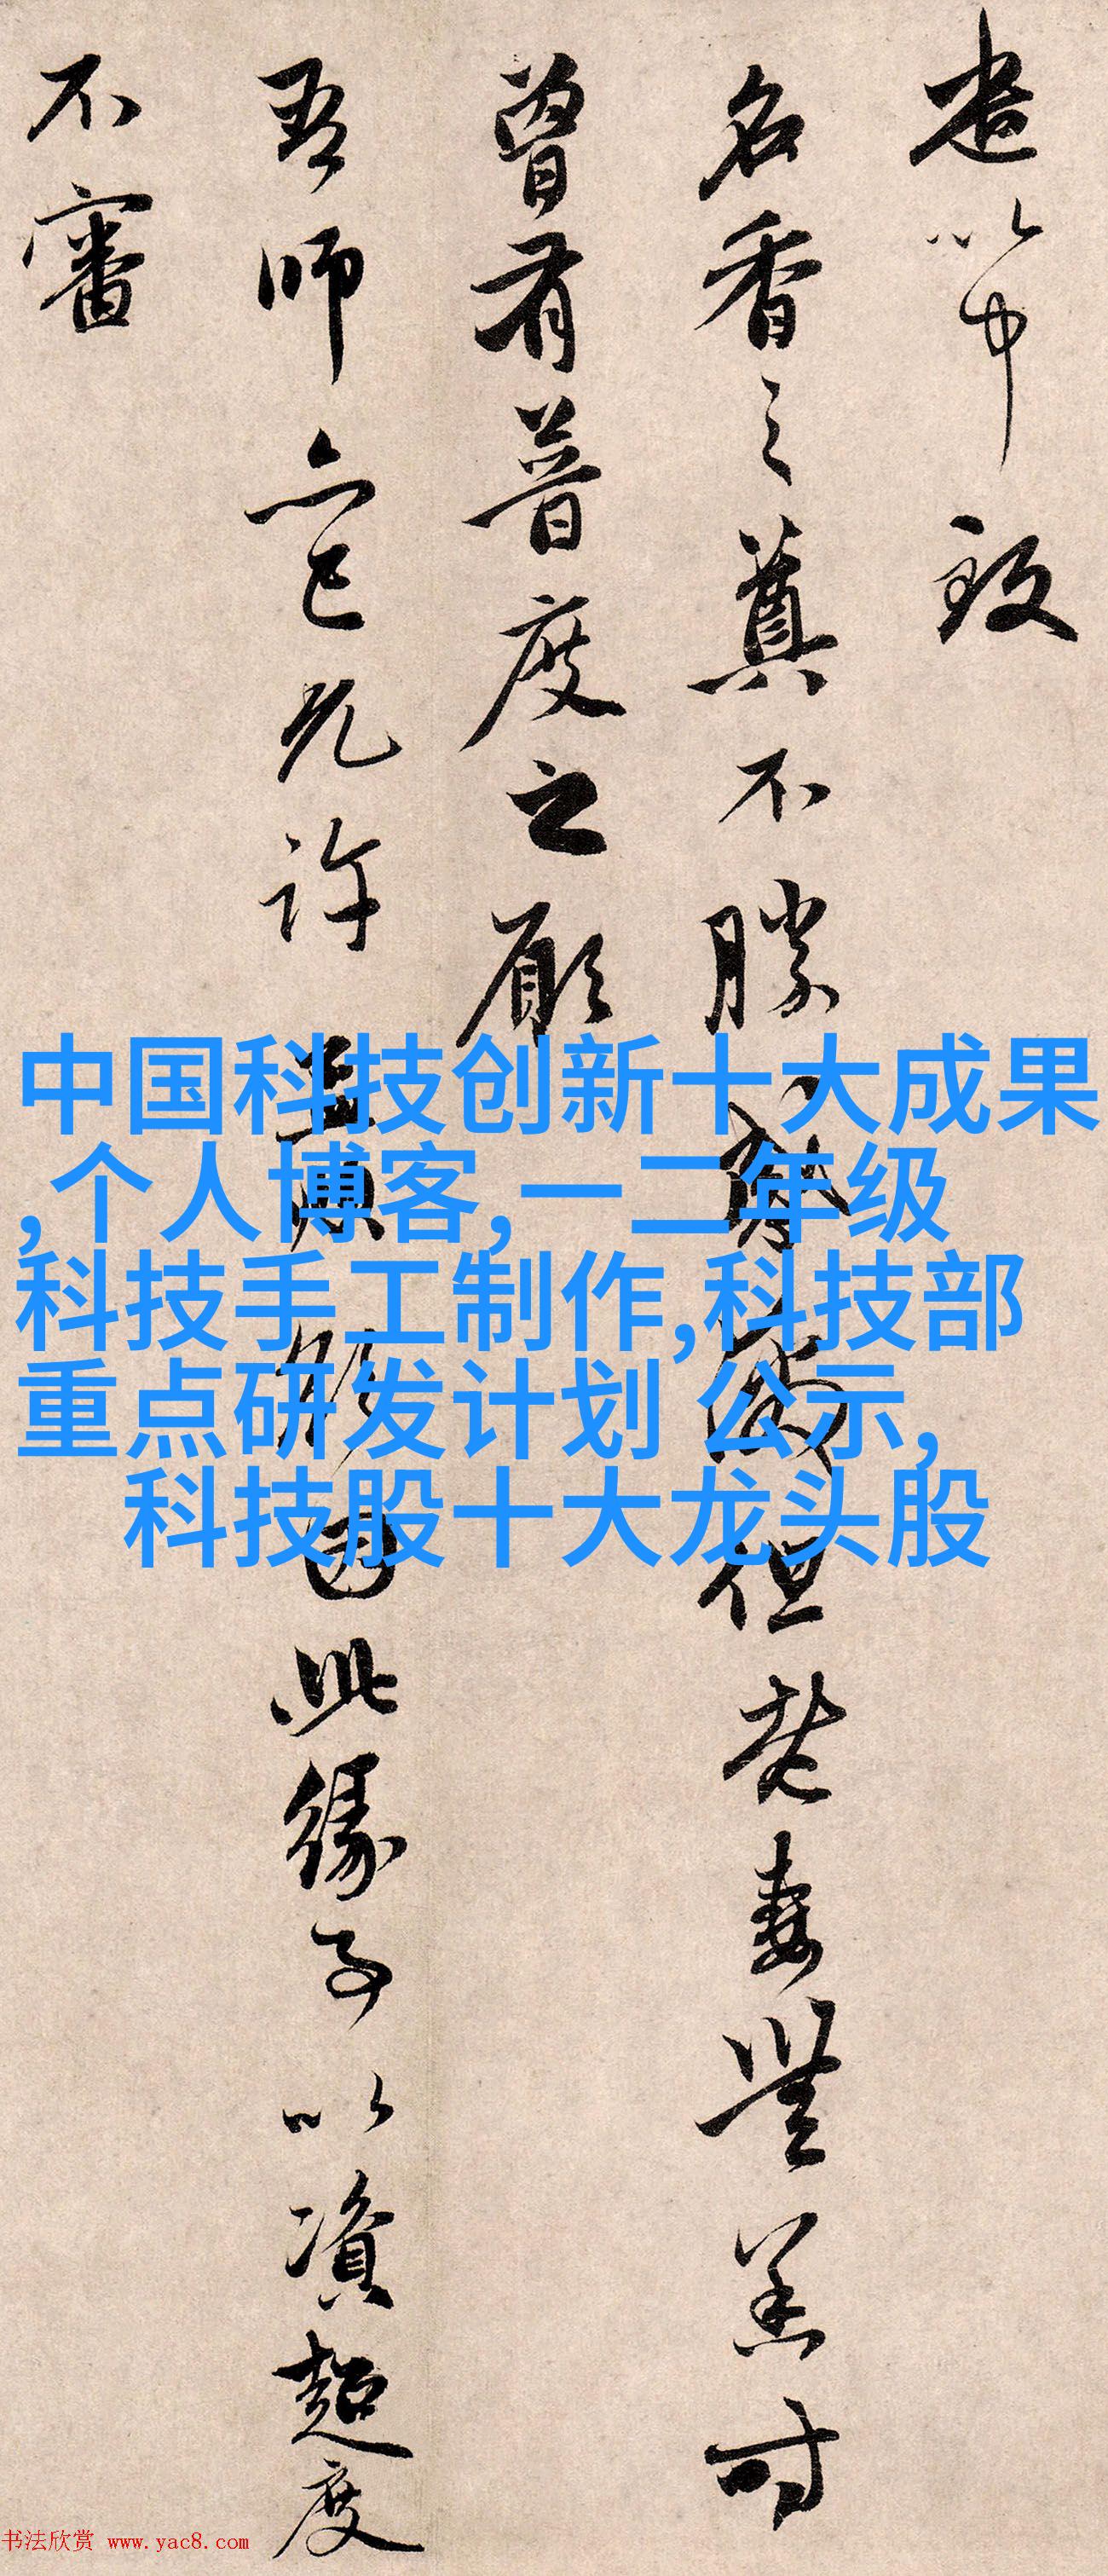 遣以中致
名香之奠不勝
但焚妻無恙时
曾有普度之願
吾師亦已允许
因此緣子以資超度
不審
中国科技创新十大成果
,个人博客,一二年级
科技手工制作,科技部
重点研发计划 公示,
科技股十大龙头股
书法欣赏 www.yac8.com